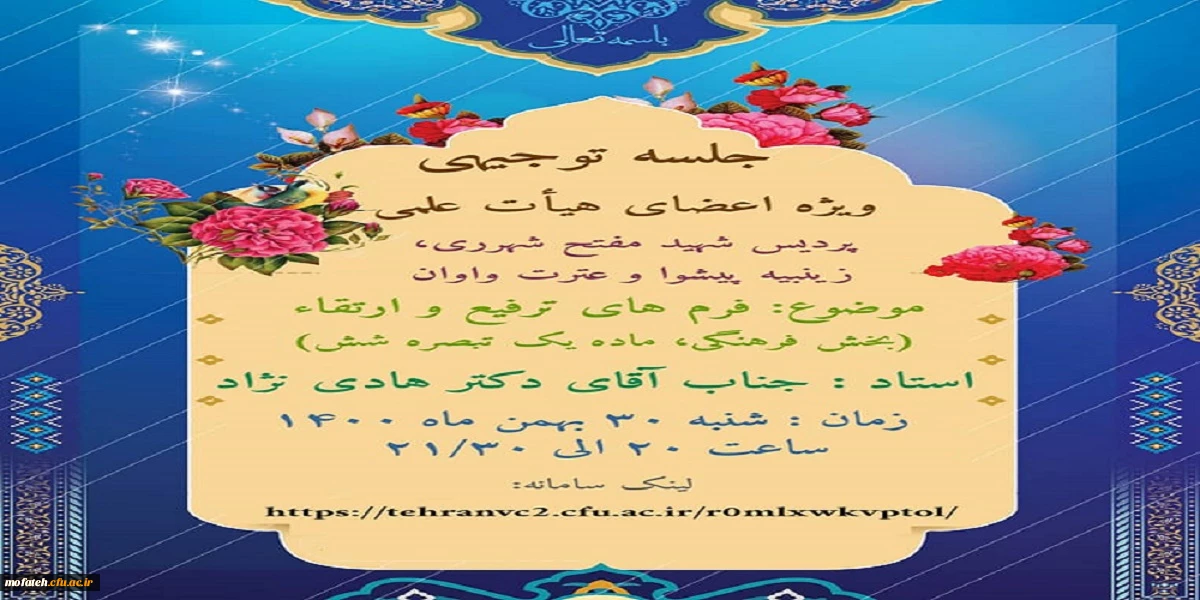 باسمه تعالی
جلسه توجیهی
ویژه اعضای هیأت علمی
پردیس شهید مفتح شهرری،
زینبیه پیشوا و عترت واوان
موضوع: فرم های ترفیع و ارتقاء
(بخش فرهنگی، ماده یک تبصره شش)
استاد : جناب آقای دکتر هادی نژاد
زمان : شنبه ۳۰ بهمن ماه ۱۴۰۰
ساعت ۲۰ الی ۲۱/۳۰
لینک سامانه:
https://tehranvc2.cfu.ac.ir/r0mlxwkvptol/
mofateh.cfu.ac.ir